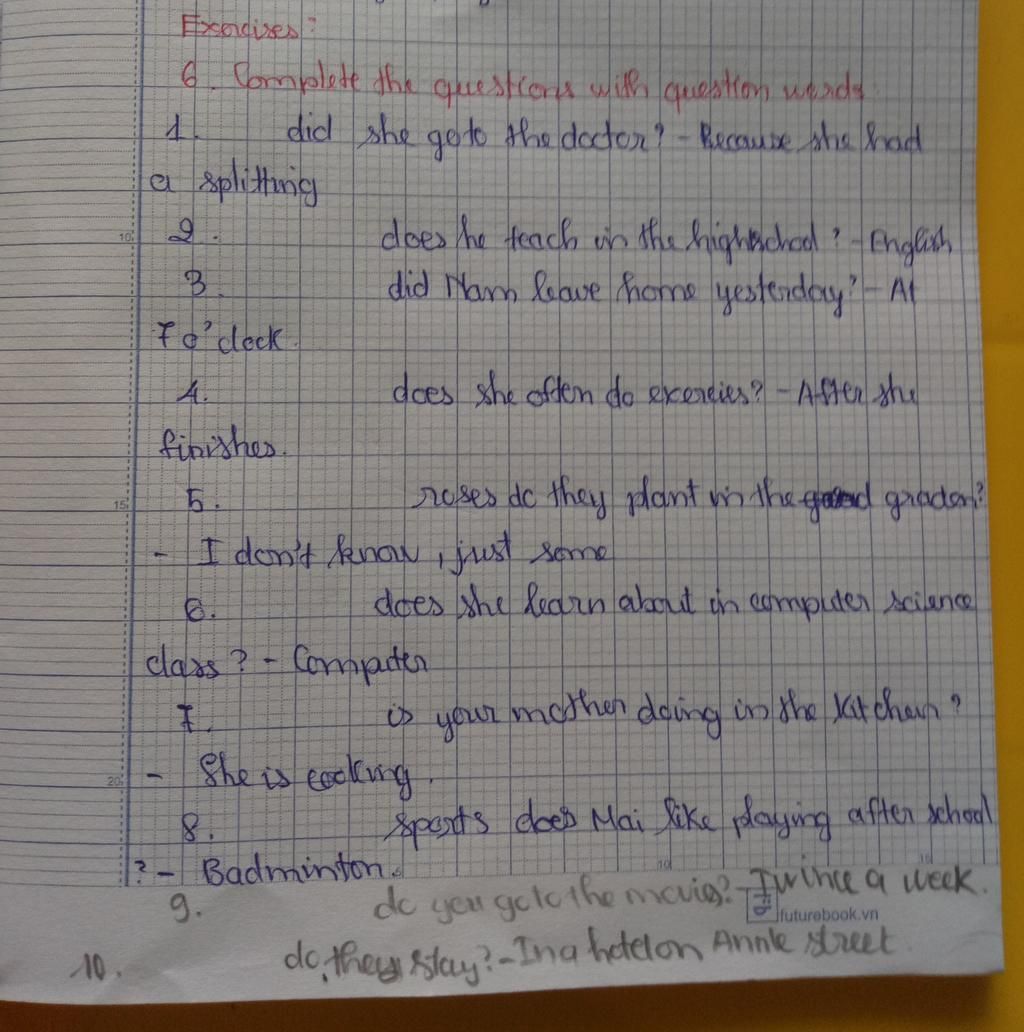 Exercises:
6. Complete the questions with question words
1. did she go to the doctor? - Because she had
a splitting
2. does he teach in the highschool? - English
3. did Nam leave home yesterday? - At
7 o'clock.
4. does she often do exercies? - After she
finishes.
5. roses do they plant in the graden?
- I don't know, just some
6. does she learn about in computer science
class? - Computer
7. is your mother doing in the kitchen?
- She is cooking.
8. sports does Mai like playing after school
? - Badminton.
9. do you go to the movies? - Twince a week.
futurebook.vn
10. do they stay? - In a hotel on Annie street.
10
15
20
10
15